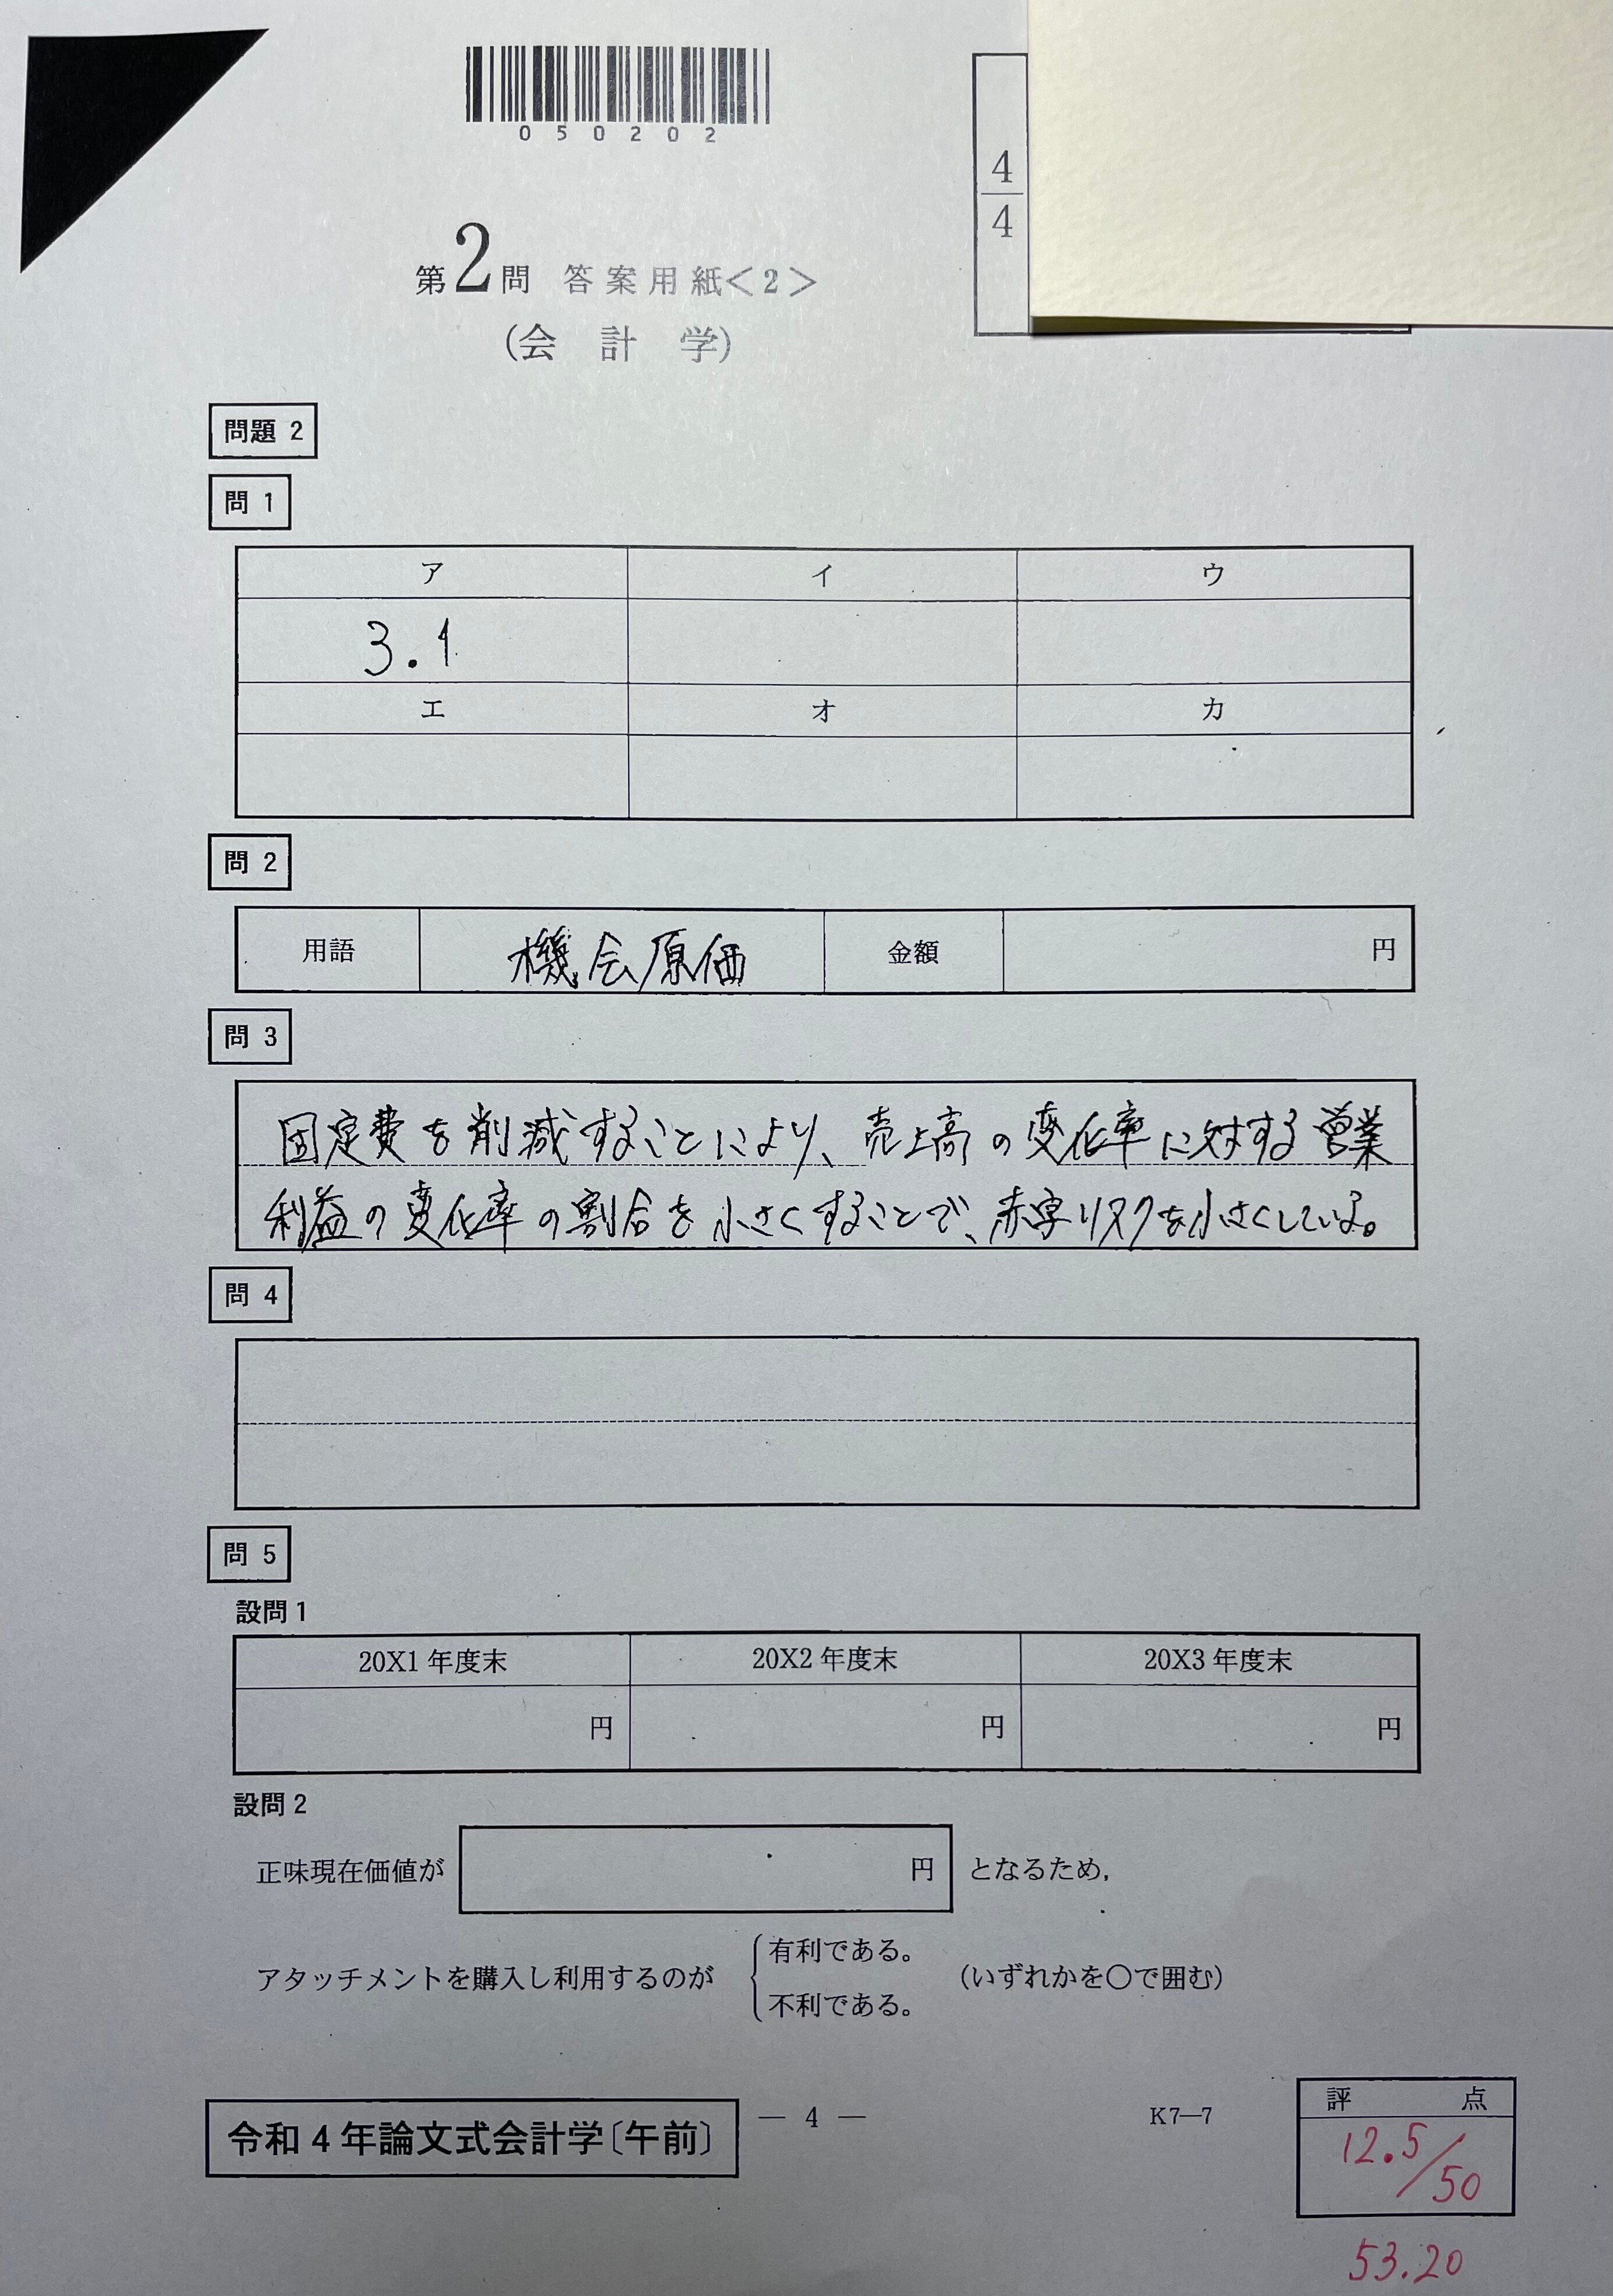 050202
4
4
第2問 答案用紙<2>
(会計学)
問題 2
問 1
ア イ ウ
3.1
エ オ カ
問 2
用語 機会原価 金額 円
問 3
固定費を削減することにより、売上高の変化率に対する営業
利益の変化率の割合を小さくすることで、赤字リスクを小さくしている。
問 4
問 5
設問 1
20X1 年度末 20X2 年度末 20X3 年度末
円 円 円
設問 2
正味現在価値が 円 となるため,
アタッチメントを購入し利用するのが
有利である。
不利である。
(いずれかを○で囲む)
令和4年論文式会計学〔午前〕
— 4 —
K7—7
評点
12.5/50
53.20